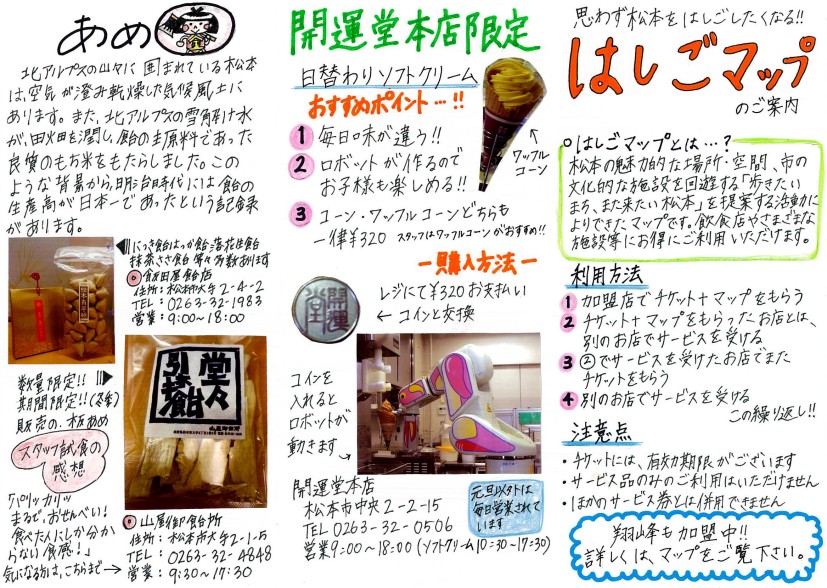 あめ
北アルプスの山々に囲まれている松本
は、空気が澄み乾燥した気候風土に
あります。また、北アルプスの雪解け水
が、田畑を潤し、飴の主原料であった
良質のもち米をもたらしました。この
ような背景から、明治時代には飴の
生産高が日本一であったという記録
があります。
にっき飴はっか飴落花生飴
抹茶ささ飴等々多数あります
飯田屋飴店
住所：松本市大手2-4-2
TEL：0263-32-1983
営業：9:00~18:00
数量限定!!
期間限定!!(冬季)
販売の、板あめ
スタッフ試食の
感想
「パリッカリッ
まるで、おせんべい！
食べた人にしか分か
らない食感！」
気になる方は、こちらまで→
堂々
引き飴
山屋御飴所
山屋御飴所
住所：松本市大手2-1-5
TEL：0263-32-4848
営業：9:30~17:30
開運堂本店限定
日替わりソフトクリーム
おすすめポイント…!!
1 毎日味が違う!!
2 ロボットが作るので
お子様も楽しめる!!
3 コーン・ワッフルコーンどちらも
一律¥320 スタッフはワッフルコーンがおすすめ!!
ワッフル
コーン
ー購入方法ー
レジにて¥320お支払い
← コインと交換
開運堂
コインを
入れると
ロボットが
動きます
開運堂本店
松本市中央2-2-15
TEL 0263-32-0506
営業9:00~18:00 (ソフトクリーム10:30~17:30)
元旦以外は
毎日営業されて
います
思わず松本をはしごしたくなる!!
はしごマップ
のご案内
はしごマップとは…？
松本の魅力的な場所・空間、市の
文化的な施設を回遊する「歩きたい
まち、また来たい松本」を提案する活動に
よりできたマップです。飲食店やさまざまな
施設等にお得にご利用いただけます。
利用方法
1 加盟店でチケット+マップをもらう
2 チケット+マップをもらったお店とは、
別のお店でサービスを受ける
3 ②でサービスを受けたお店でまた
チケットをもらう
4 別のお店でサービスを受ける
この繰り返し!!
注意点
・チケットには、有効期限がございます
・サービス品のみのご利用はいただけません
・ほかのサービス券とは併用できません
翔峰も加盟中!!
詳しくは、マップをご覧下さい。